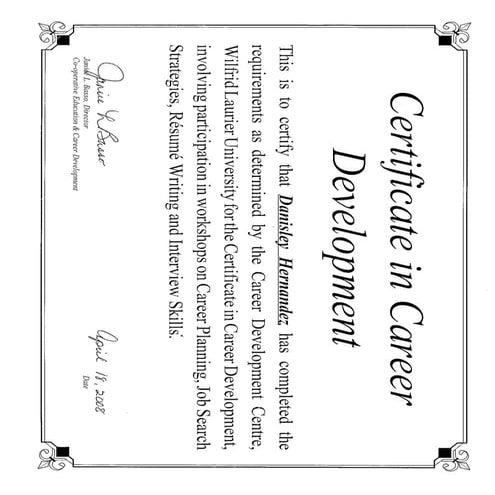 Certificate in Career
Development
This is to certify that Danisley Hernandez has completed the
requirements as determined by the Career Development Centre,
Wilfrid Laurier University for the Certificate in Career Development,
involving participation in workshops on Career Planning, Job Search
Strategies, Résumé Writing and Interview Skills.
Janice L Basso
Janice L. Basso, Director
Co-operative Education & Career Development
April 18, 2008
Date